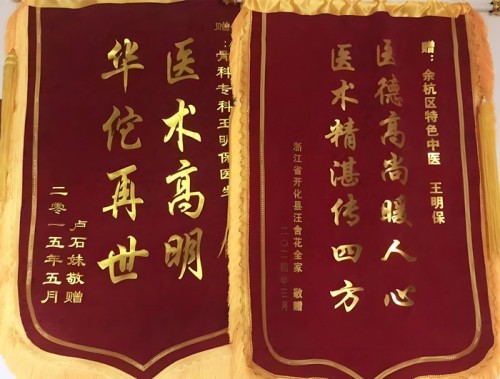 赠：骨科专科王明保医生
医术高明
华佗再世
卢石妹敬赠
二〇一五年五月
赠：余杭区特色中医 王明保
医德高尚暖人心
医术精湛传四方
浙江省开化县汪舍花全家 敬赠